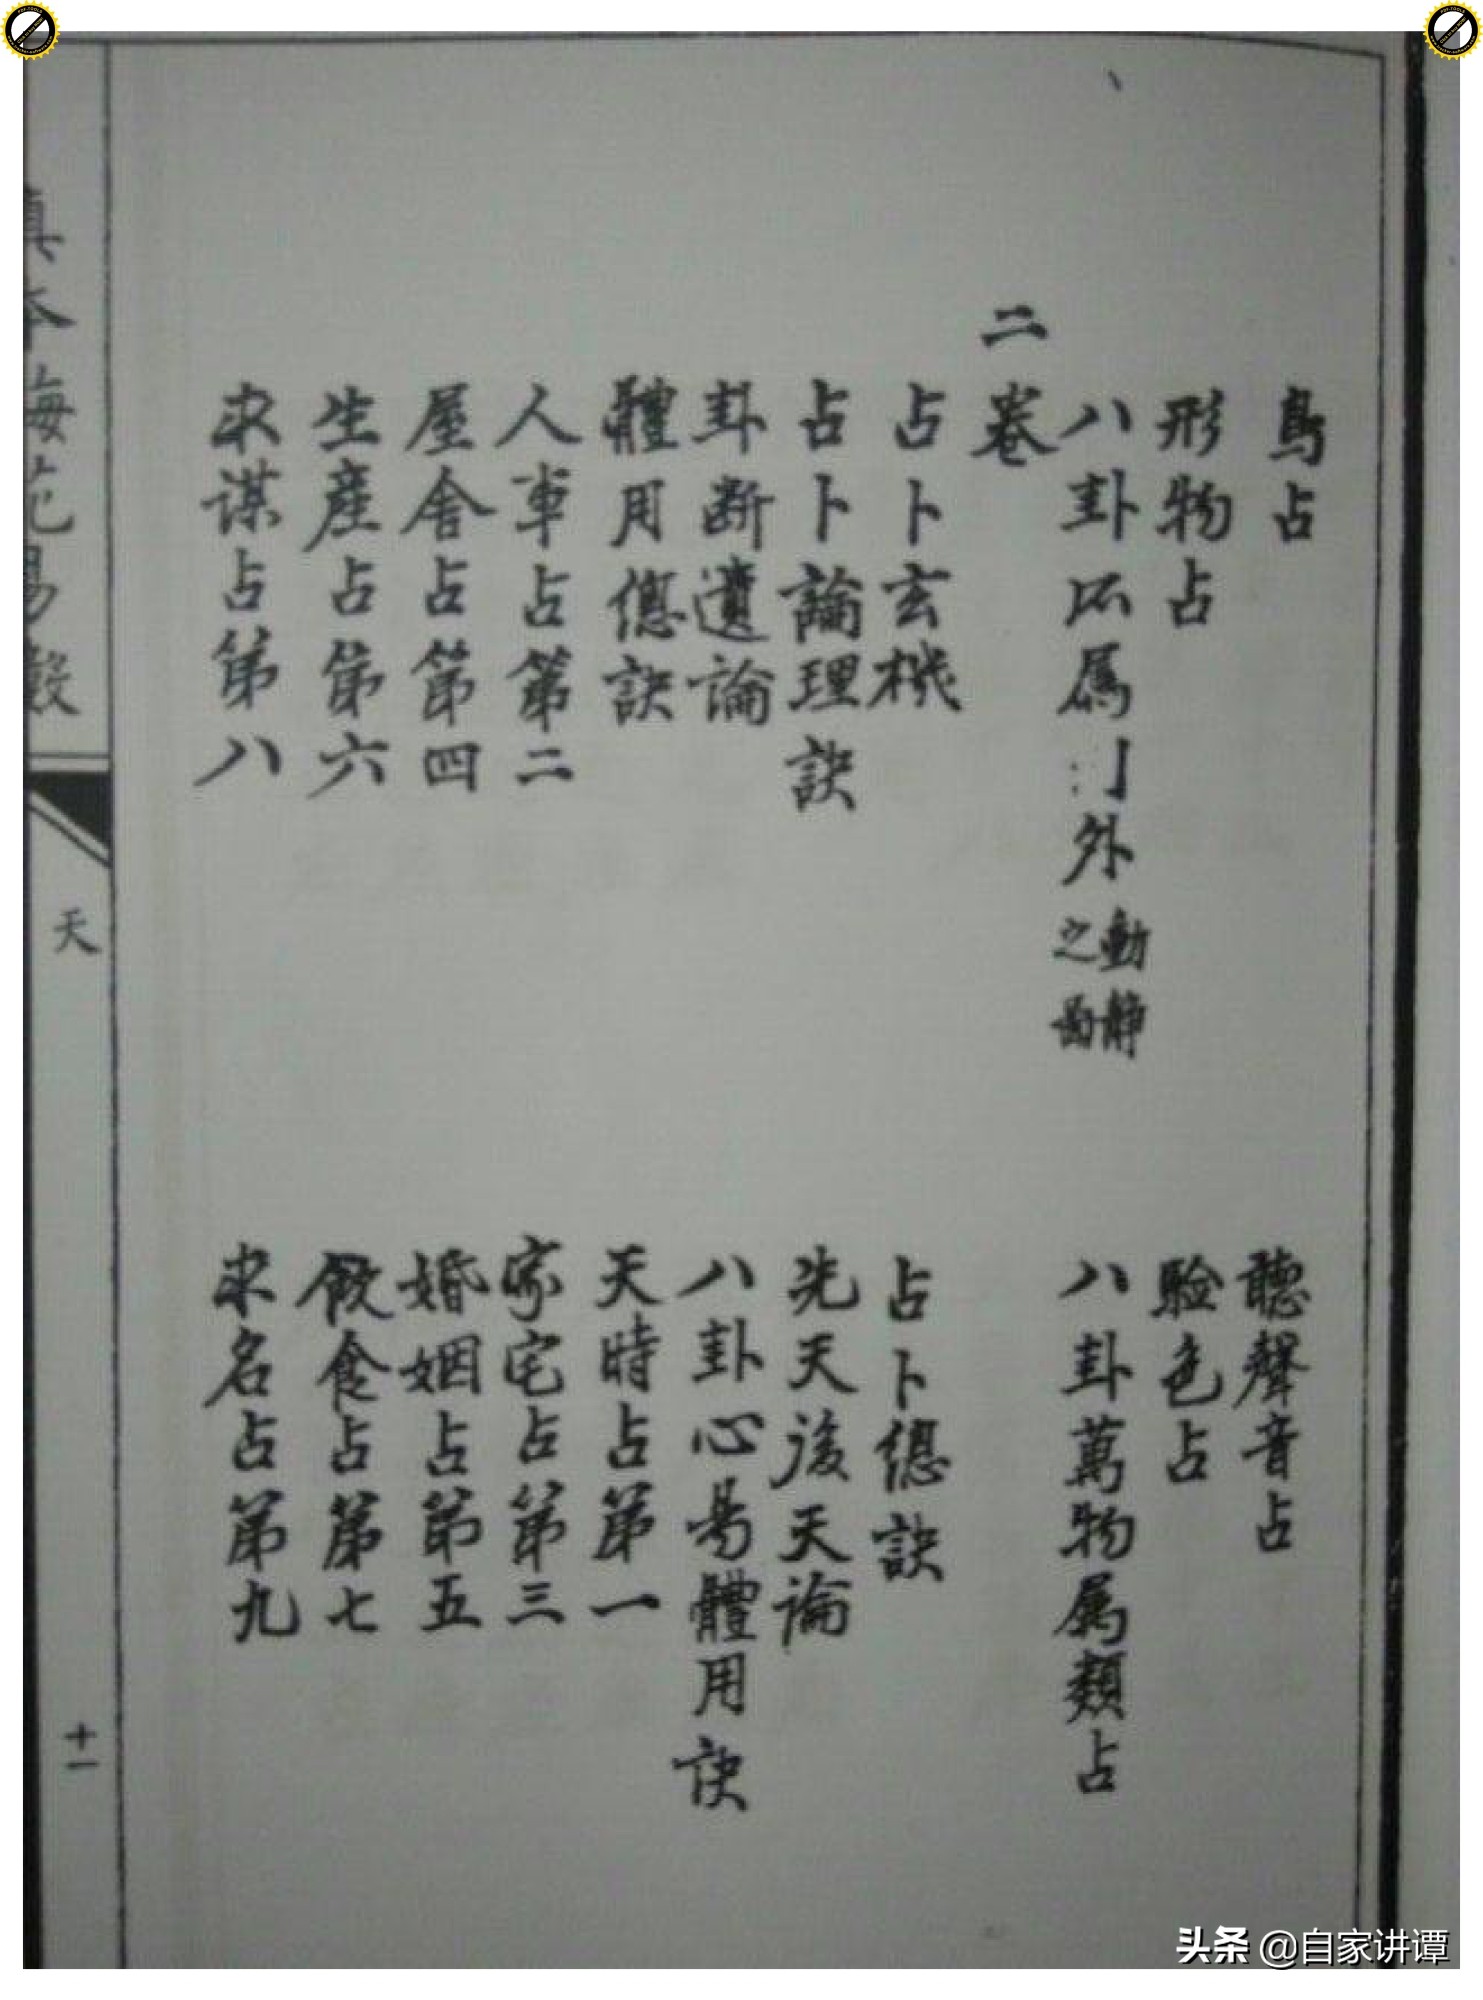 鳥占
聽聲音占
形物占
验色占
八卦不属 外動静之圖
八卦萬物属類占
二卷
占卜玄機
占卜總訣
占卜論理訣
先天後天論
卦断遺論
八卦心易體用訣
體用總訣
天時占第一
人事占第二
家宅占第三
屋舍占第四
婚姻占第五
生産占第六
飲食占第七
求謀占第八
求名占第九
真本梅花易數
天
十一
头条 @自家讲谭